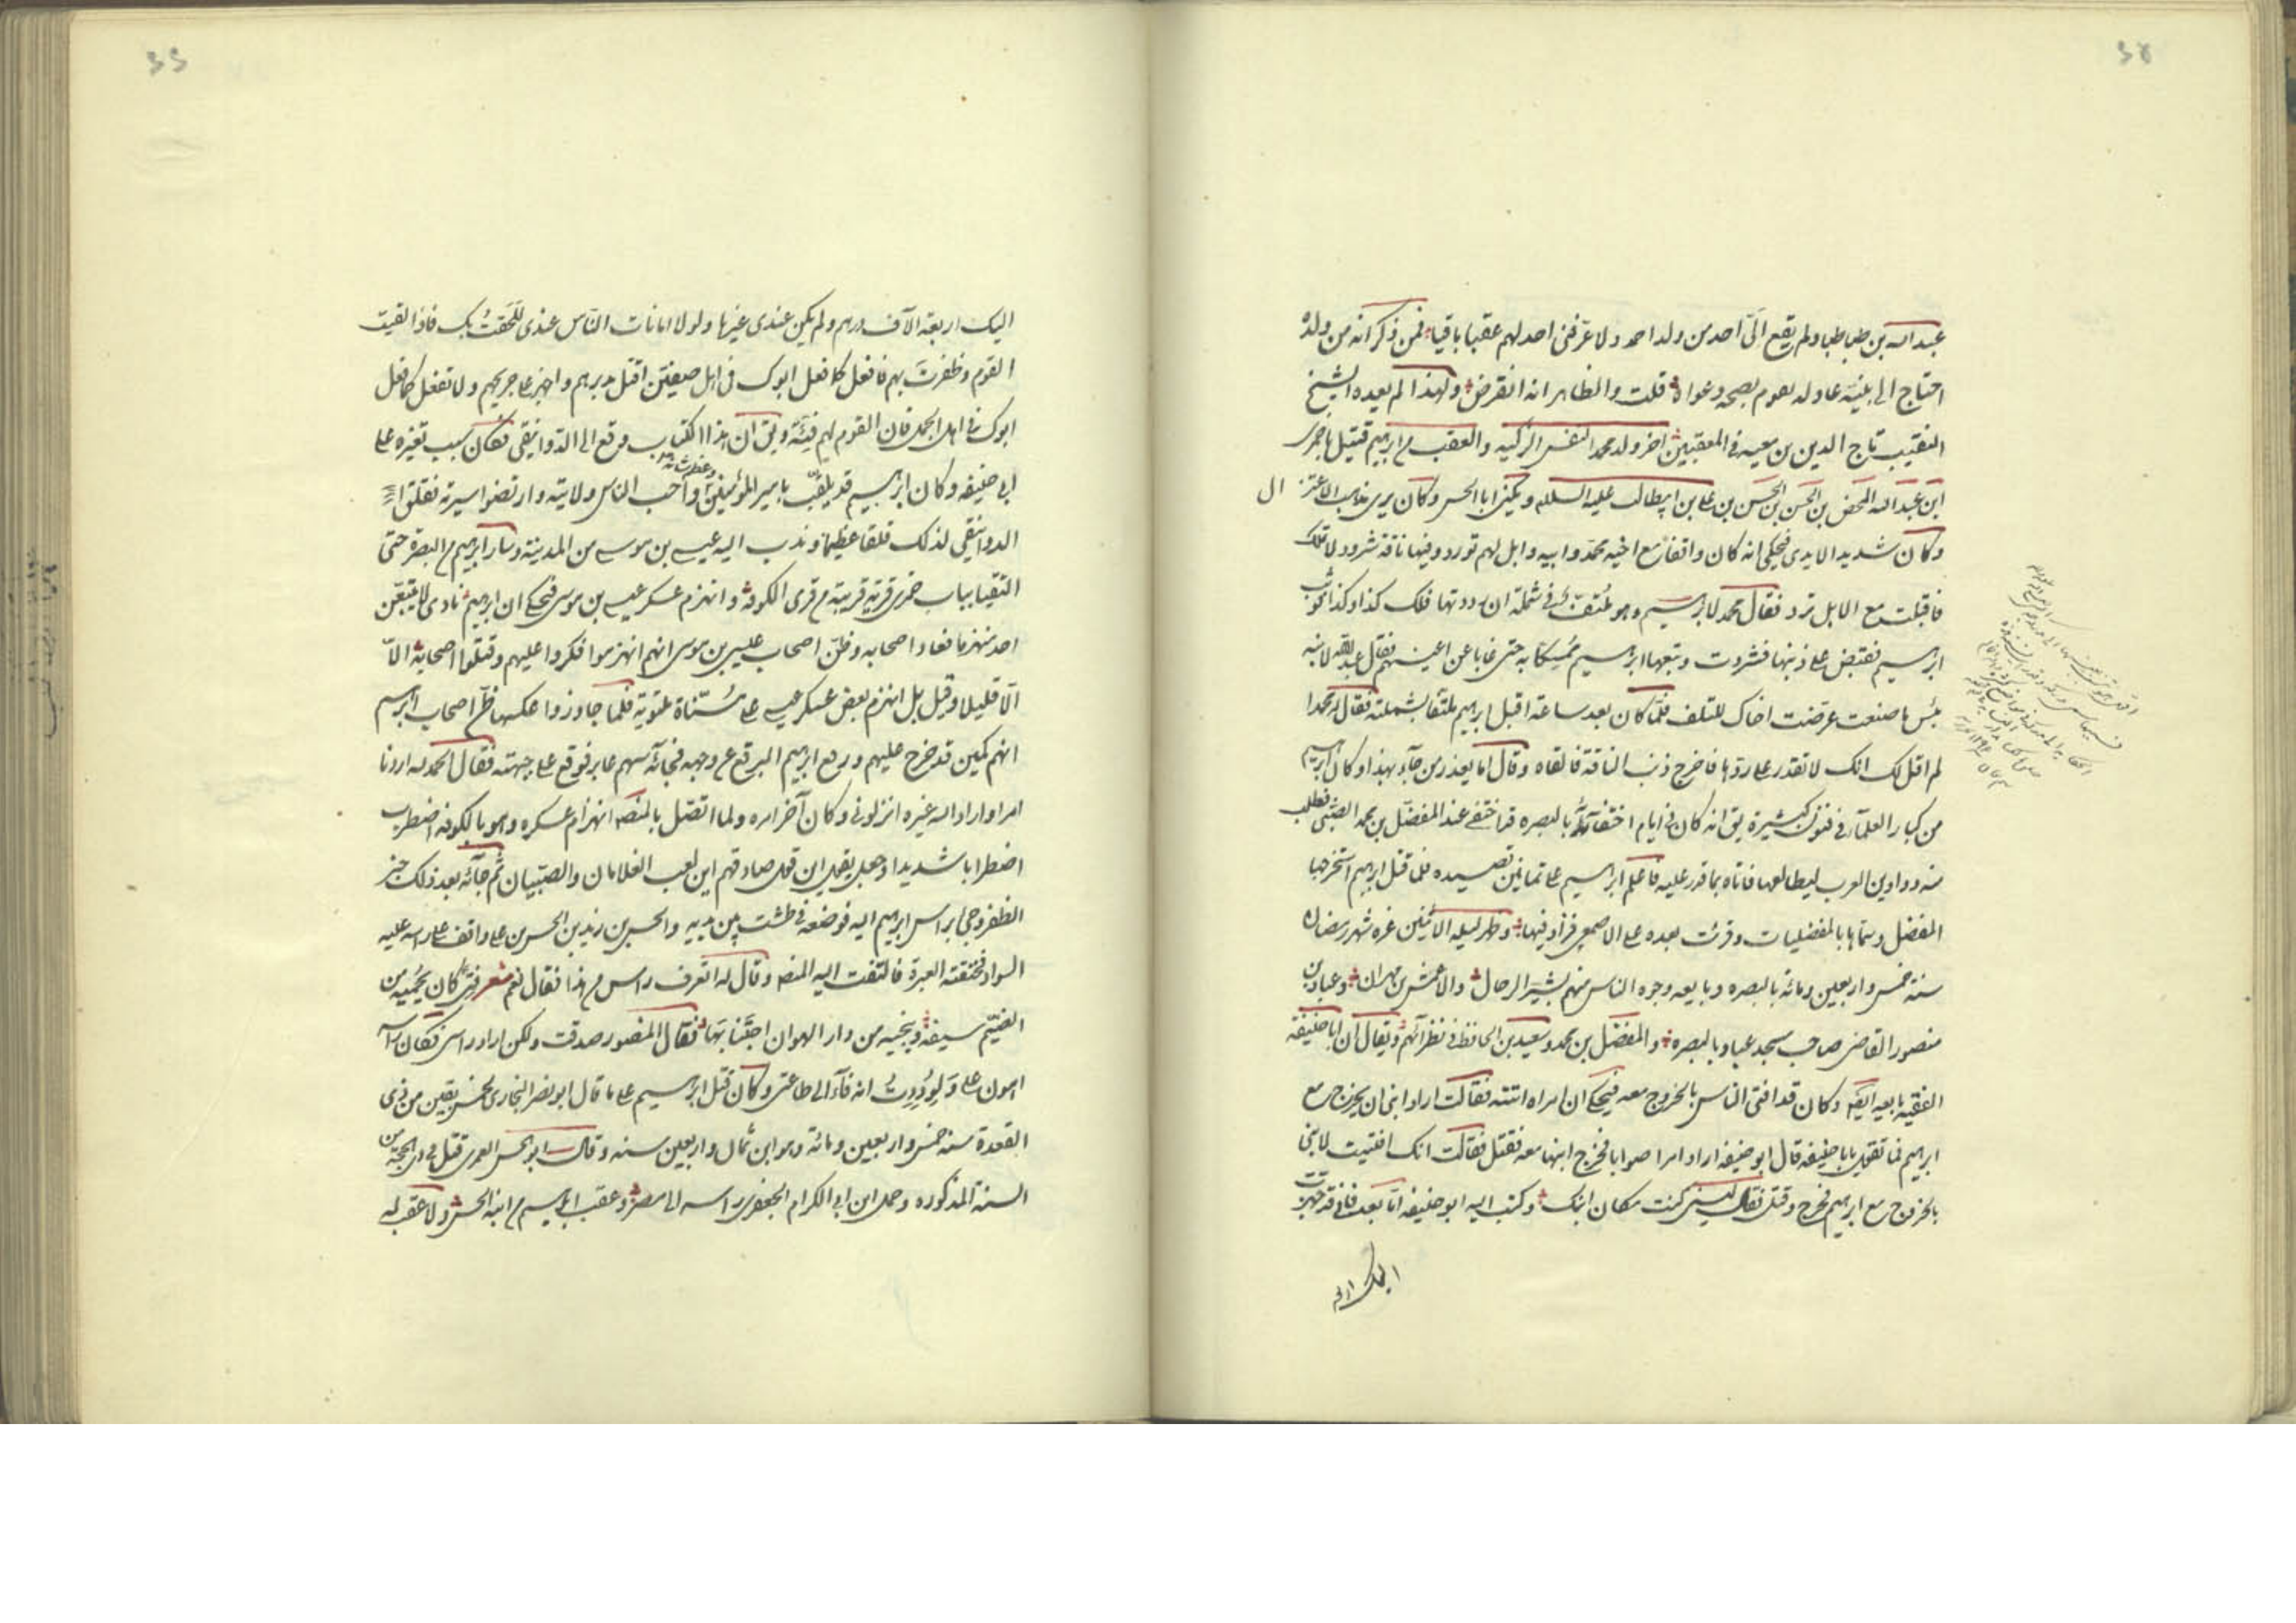 عبد الله بن طباطبا ولم يقع الىّ احد من ولد احمد ولا عرّفنى احد لهم عقبا باقيا فمن ذكر انه من ولده
احتاج الى بيّنة عادله يقوم بصحه دعواه قلت والظاهر انه انقرض ولهذا لم يعده الشيخ
النقيب تاج الدين بن معيه فى المعقبين اخر ولد محمد النفس الزكيه والعقب من ابراهيم قتيل باخمرى
ابن عبد الله المحض بن الحسن بن الحسن بن على بن ابيطالب عليه السلام ويكنى ابا الحسن وكان يرى مذاهب الاعتزال
وكان شديد الايدى فيحكى انه كان واقفا مع اخيه محمد وابيه وابل لهم تورد وفيها ناقة شرود لا تملك
فاقبلت مع الابل ترد فقال محمد لابرهيم وهو ملتف فى شملة ان رددتها فلك كذا وكذا فوثب
ابرهيم فقبض على ذنبها فشردت وتبعها ابرهيم ممسكا به حتى غابا عن اعينهم فقال عبد الله لابنه
بئس ما صنعت عرّضت اخاك للتلف فلمّا كان بعد ساعة اقبل ابرهيم ملتفا بشملته فقال له محمد ا
لم اقل لك انك لا تقدر على ردّها فاخرج ذنب الناقة فالقاه وقال اما يعذر من جآء بهذا وكان ابرهيم
من كبار العلمآء فى فنون كثيرة يق انه كان فى ايام اختفآئه بالبصره قد اختفى عند المفضّل بن محمد الضبّى فطلب
منه دواوين العرب ليطالعها فاتاه بما قدر عليه فاعلم ابرهيم على ثمانين قصيده فلمّا قتل ابرهيم استخرجها
المفضل وسمّاها بالمفضليات وقرئت بعده على الاصمعى فزاد فيها وظهر ليله الاثنين غره شهر رمضان
سنة خمس واربعين ومائه بالبصره وبايعه وجوه الناس منهم بشير الرحال والاعمش بن مهران وعباد بن
منصور القاضى صاحب مسجد عباد بالبصره والمفضّل بن محمد وسعيد بن الحافظ فى نظرآئهم ويقال ان ابا حنيفة
الفقيه بايعه ايضا وكان قد افتى الناس بالخروج معه فيحكى ان امراه اتته فقالت اراد ابنى ان يخرج مع
ابرهيم فما تقول يا ابا حنيفه قال ابو حنيفه اراد امرا صوابا فخرج ابنها معه فقتل فقالت انك افتيت لابنى
بالخروج مع ابرهيم فخرج وقتل فقال ليتنى كنت مكان ابنك وكتب اليه ابو حنيفه امّا بعد فانى قد جهزت
اليك اربعه
اليك اربعة الآف درهم ولم يكن عندى غيرها ولولا امانات النّاس عندى للحقتُ بك فاذا لقيت
القوم وظفرت بهم فافعل كما فعل ابوك فى اهل صفين اقتل مدبرهم واجهز على جريحهم ولا تفعل كما فعل
ابوك فى اهل الجمل فان القوم لهم فئة ويق ان هذا الكتاب وقع الى الدّوانيقى فكان سبب تغيّره على
ابى حنيفه وكان ابرهيم قد يلقّب بامير المؤمنين وعظم شانه واحب الناس ولايته وارتضوا سيرته فقلق
الدوانيقى لذلك قلقا عظيما وندب اليه عيسى بن موسى من المدينة وسار ابرهيم من البصره حتى
التقيا بباب خمرى قرية قريبة من قرى الكوفه وانهزم عسكر عيسى بن موسى فيحكى ان ابرهيم نادى لا يتبعن
احد منهزما فعاد اصحابه وظن اصحاب عيسى بن موسى انهم انهزموا فكروا عليهم وقتلوا اصحابه الاّ
الّا قليلا وقيل بل انهزم بعض عسكر عيسى على مسنّاة ملتوية فلما جاوزوا عكسها ظنّ اصحاب ابرهيم
انهم كمين قد خرج عليهم ورفع ابرهيم البرقع عن وجهه فجائه سهم عابر فوقع على جبهته فقال الحمد لله اردنا
امرا واراد الله غيره انزلونى وكان آخر امره ولما اتصل بالمنصور انهزام عسكره وهو بالكوفه اضطرب
اضطرابا شديدا وجعل يقول اين قول صادقهم اين لعب الغلامان والصبيان ثم جآئه بعد ذلك خبر
الظفر وجئ براس ابرهيم اليه فوضعه فى طشت بين يديه والحسن بن زيد بن الحسن بن على واقف على راسه عليه
السواد فخنقته العبرة فالتفت اليه المنصور وقال له اتعرف راس من هذا فقال نعم شعر فتى كان يحميه من
الضيّم سيفه وينجيه من دار الهوان اجتنابها فقال المنصور صدقت ولكن اراد راسى فكان راسه
اهون علىّ ولوددت انه فآء الى طاعتى وكان قتل ابرهيم على ما قال ابو نصر البخارى لخمس بقين من ذى
القعدة سنه خمس واربعين ومائة وهو ابن ثمان واربعين سنه وقال ابو الحسن العمرى قتل فى ذى الحجة من
السنة المذكوره وحمل ابن ابى الكرام الجعفرى راسه الى مصر وعقب ابرهيم من ابنه الحسن ولا عقب له